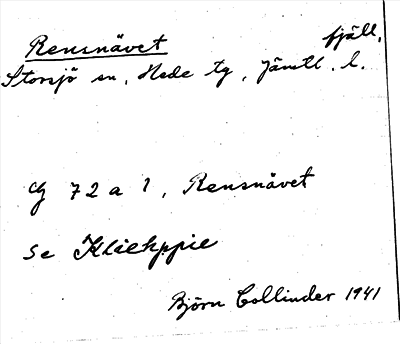 Rensnävet fjäll.
Storsjö sn, Hede tg, Jämtl. l.
G 72 a 1, Rensnävet
se Klaehppie
Björn Collinder 1941